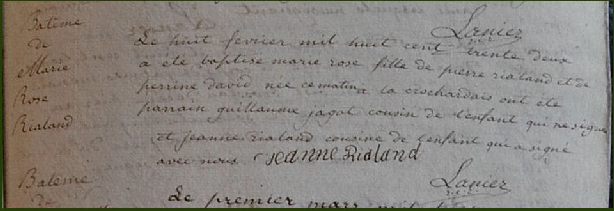 Laniez
Batême
de
Marie
Rose
Rialand
Le huit fevrier mil huit cent trente deux
a eté baptise marie rose fille de pierre rialand et de
perrine david nee ce matin a la crochardais ont eté
parrain guillaume jagot cousin de l'enfant qui ne signe
et jeanne rialand cousine de l'enfant qui a signé
avec nous Jeanne Rialand
Lanier
Bateme
de
Le premier mars